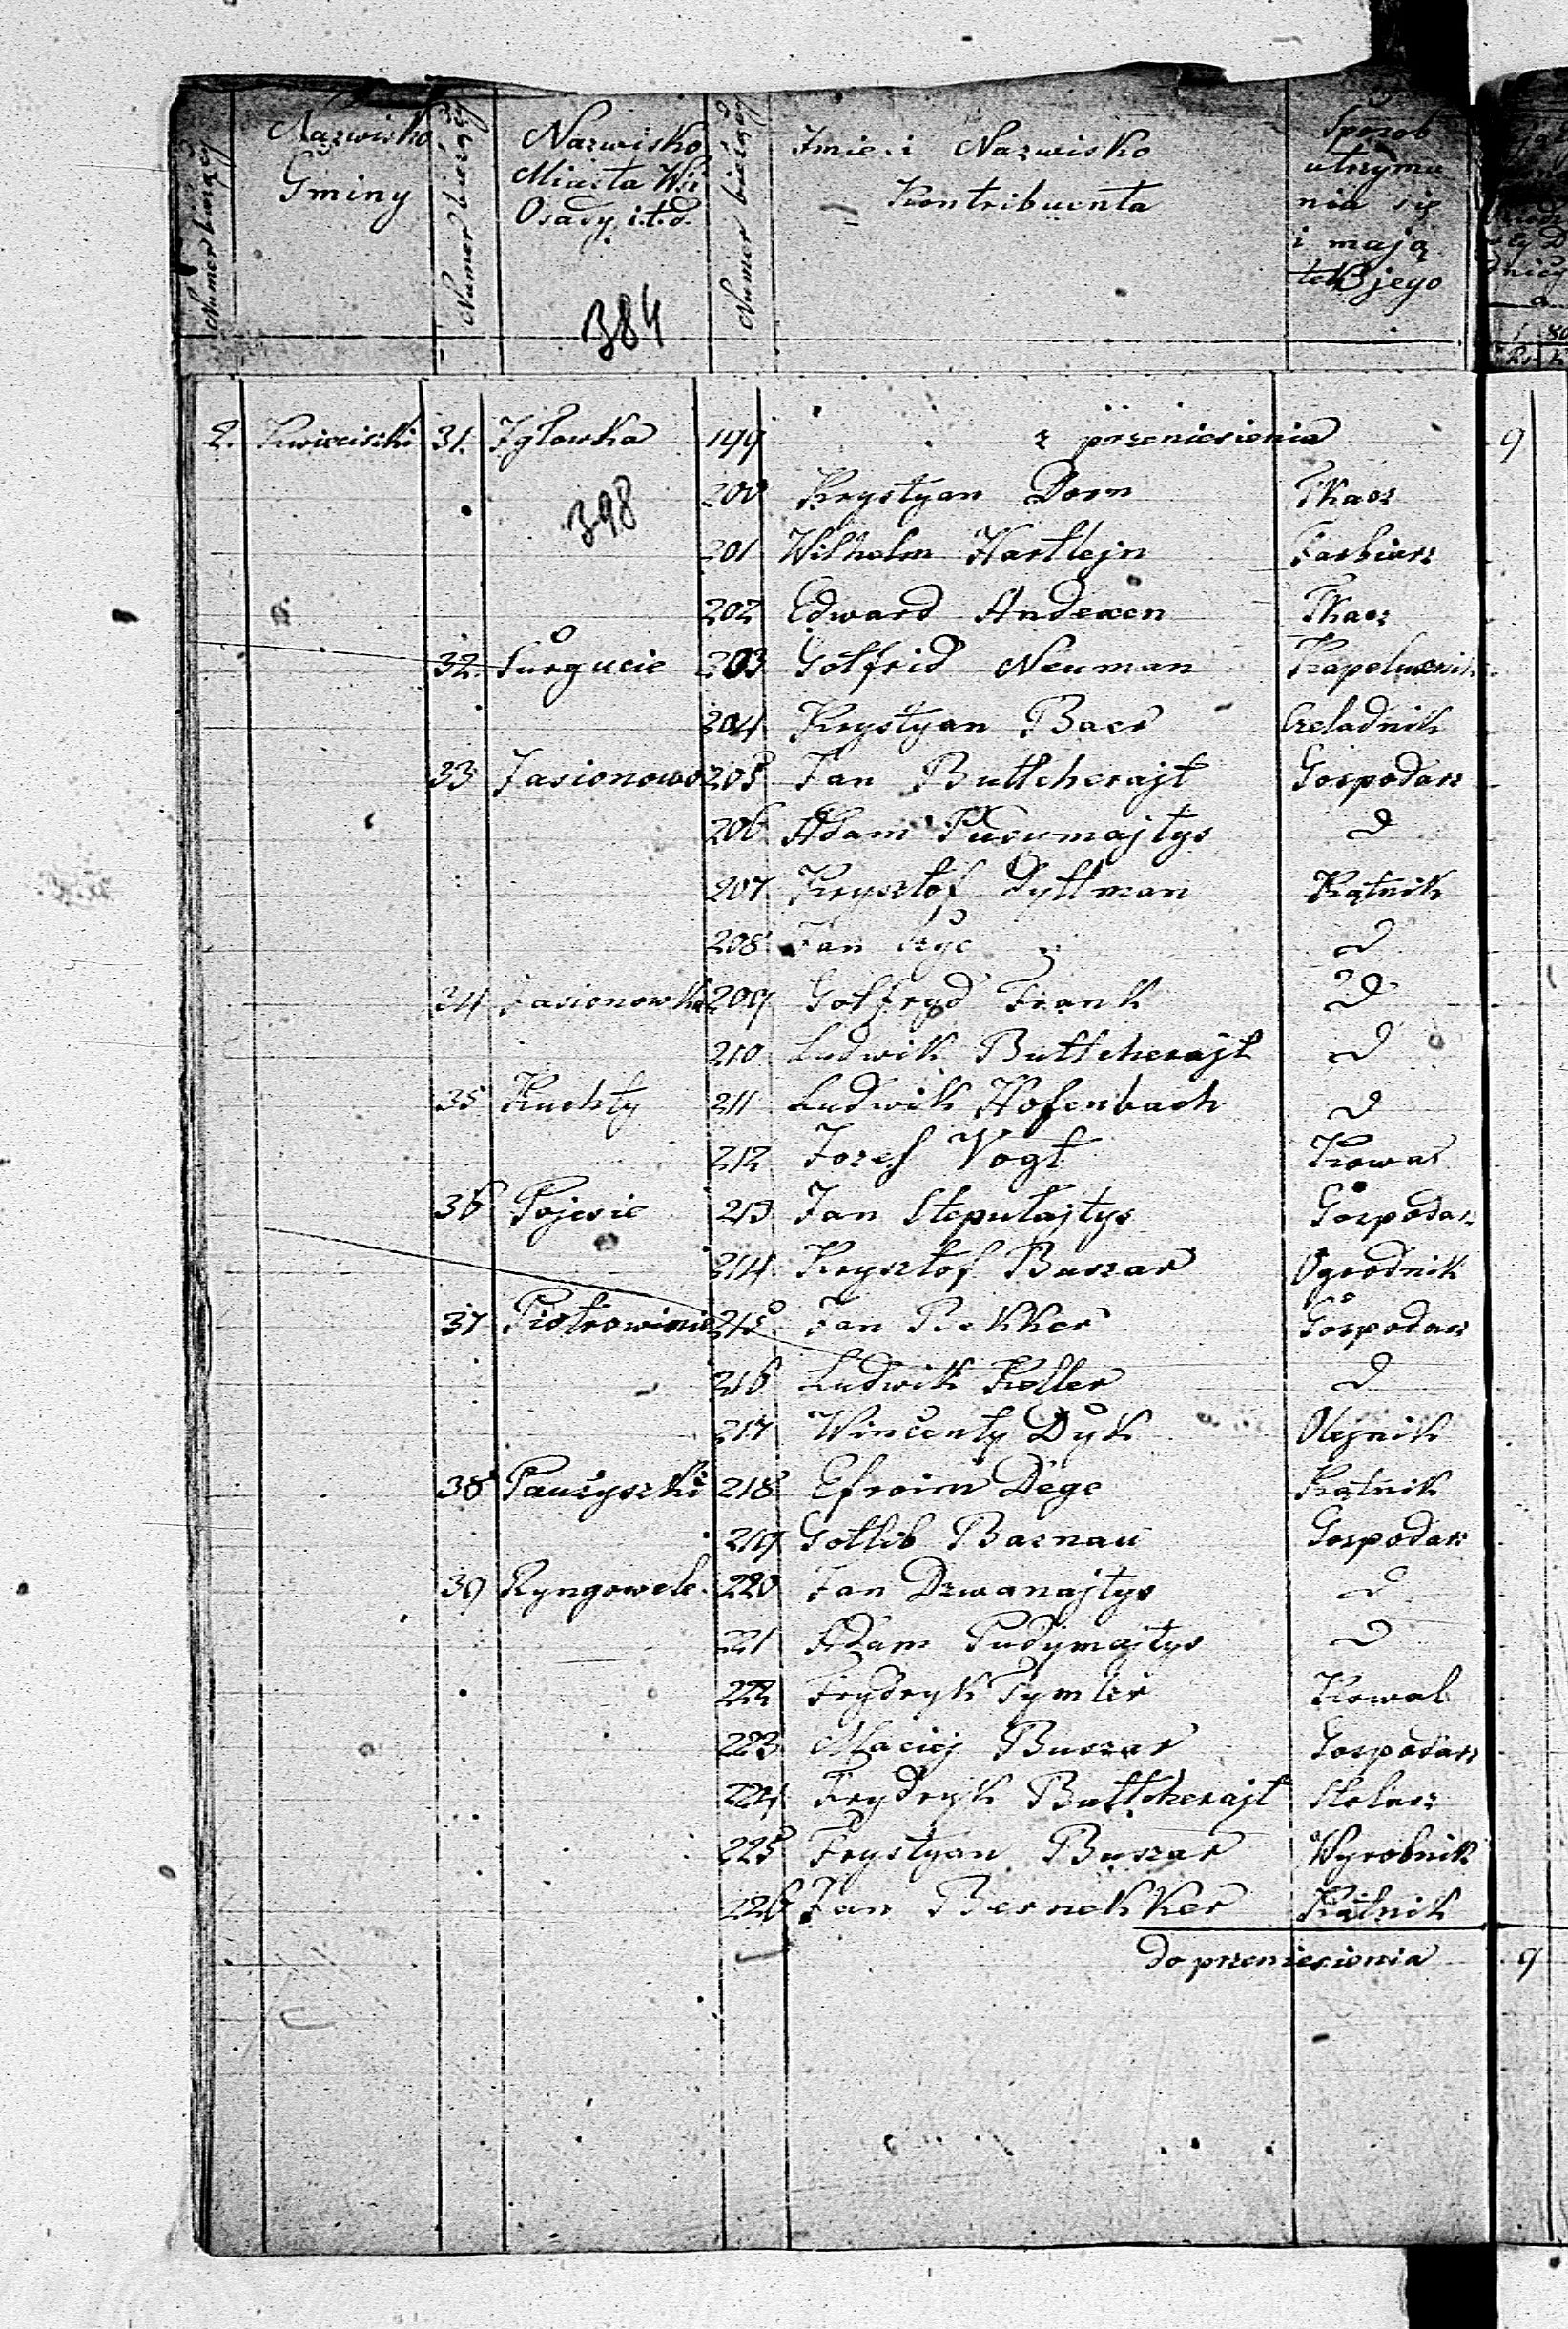 Numer bieżący Nazwisko Gminy Numer bieżący Nazwisko Miasta Wsi Osady i.t.d. Numer bieżący Imie i Nazwisko Kontribuenta Sposob utrzyma nia się i mają tek jego
384
2. Kwieciszki 31. Igłowka 199 z przeniesienia 9
398
200 Krystyan Dorn Tkacz
201 Wilhelm Hartlejn Farbierz
202 Edward Andexen Tkacz
32. Surgucie 203 Gotfrid Neuman Kapelusznik
204 Krystyan Baer Czeladnik
33 Jasionowo 205 Jan Buttcherajt Gospodarz
206 Adam Pusumajtys d
207 Krysztof Dyttman Kątnik
208 Jan d
34 Jasionowka 209 Gotfryd Frank d
210 Ludwik Buttcherajt d
35 Kuchty 211 Ludwik Hofenbach d
212 Jozef Vogt Kowal
36 Pojesie 213 Jan Steputajtys Gospodarz
214 Krysztof Buszar Ogrodnik
37 Piotrowinie 215 Jan Bekker Gospodarz
216 Ludwik Keller d
217 Wincenty Dyk Olejnik
38 Paużyszki 218 Efroim Dege Kątnik
219 Gotlib Barnau Gospodarz
39 Ryngowele 220 Jan Drwanajtys d
221 Adam Pudymajtys d
222 Frydryk Tymler Kowal
223 Maciej Buszar Gospodarz
224 Frydryk Buttcherajt Stolarz
225 Frystyan Buszar Wyrobnik
226 Jan Bernekker Kątnik
do przeniesienia 9